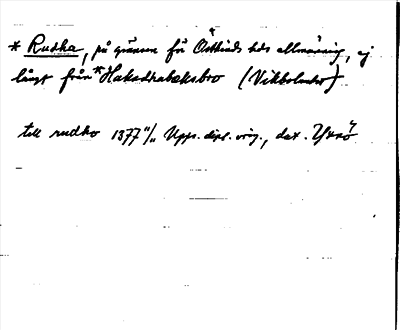 * Rudha, på gränsen för Östkinds hds allmänning, ej
långt från *Haksdhabæksbro (Vikbolandet)
till rudho 1377 11/11 Upps. dipl. orig., dat. Yxnö